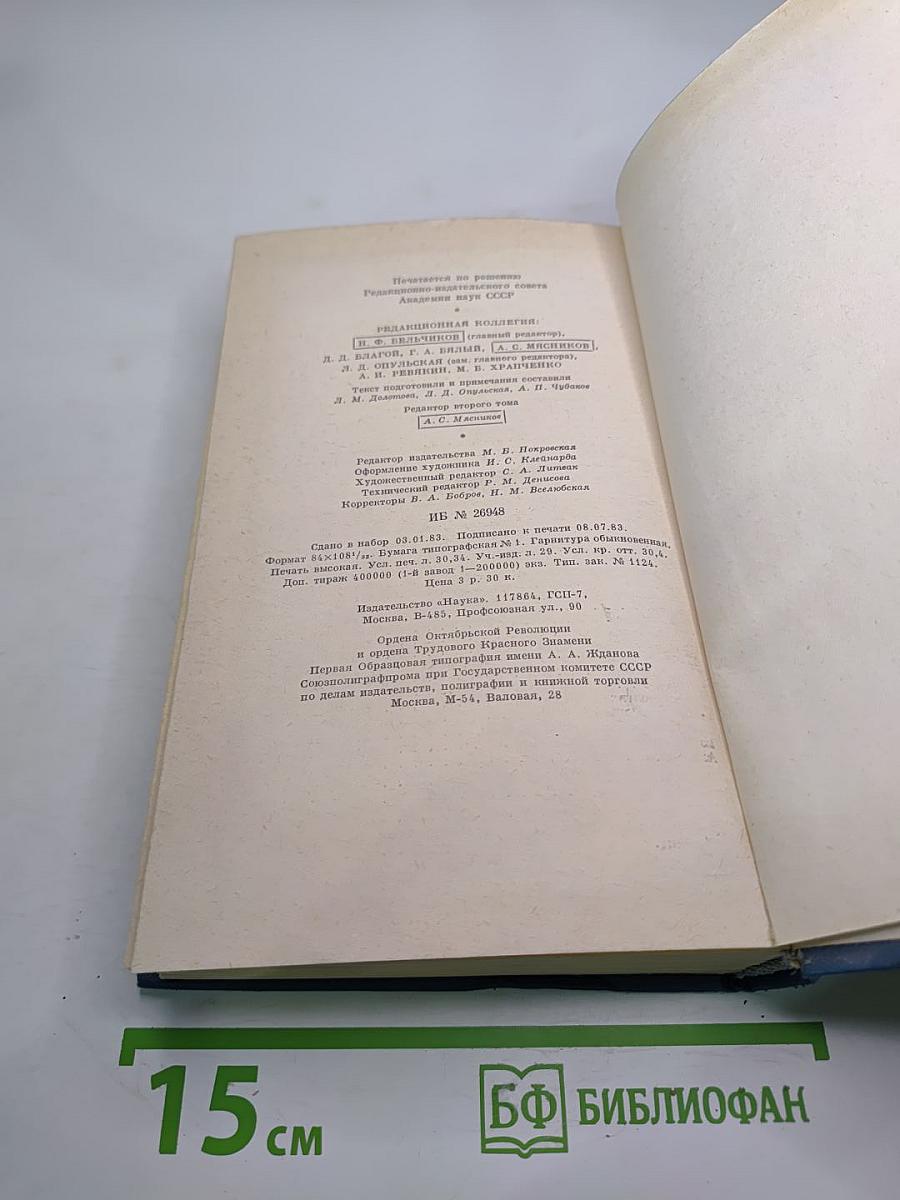 Печатается по решению
Редакционно-издательского совета
Академии наук СССР
РЕДАКЦИОННАЯ КОЛЛЕГИЯ:
Н. Ф. БЕЛЬЧИКОВ (главный редактор),
Д. Д. БЛАГОЙ, Г. А. БЯЛЫЙ, А. С. МЯСНИКОВ,
Л. Д. ОПУЛЬСКАЯ (зам. главного редактора),
А. И. РЕВЯКИН, М. Б. ХРАПЧЕНКО
Текст подготовили и примечания составили
Л. М. Долотова, Л. Д. Опульская, А. П. Чудаков
Редактор второго тома
А. С. Мясников
Редактор издательства М. Б. Покровская
Оформление художника И. С. Клейнарда
Художественный редактор С. А. Литвак
Технический редактор Р. М. Денисова
Корректоры В. А. Бобров, Н. М. Вселюбская
ИБ № 26948
Сдано в набор 03.01.83. Подписано к печати 08.07.83.
Формат 84×108¹/₃₂. Бумага типографская № 1. Гарнитура обыкновенная.
Печать высокая. Усл. печ. л. 30,34. Уч.-изд. л. 29. Усл. кр. отт. 30,4.
Доп. тираж 400000 (1-й завод 1—200000) экз. Тип. зак. № 1124.
Цена 3 р. 30 к.
Издательство «Наука». 117864, ГСП-7,
Москва, В-485, Профсоюзная ул., 90
Ордена Октябрьской Революции
и ордена Трудового Красного Знамени
Первая Образцовая типография имени А. А. Жданова
Союзполиграфпрома при Государственном комитете СССР
по делам издательств, полиграфии и книжной торговли
Москва, М-54, Валовая, 28
15 см
БФ БИБЛИОФАН